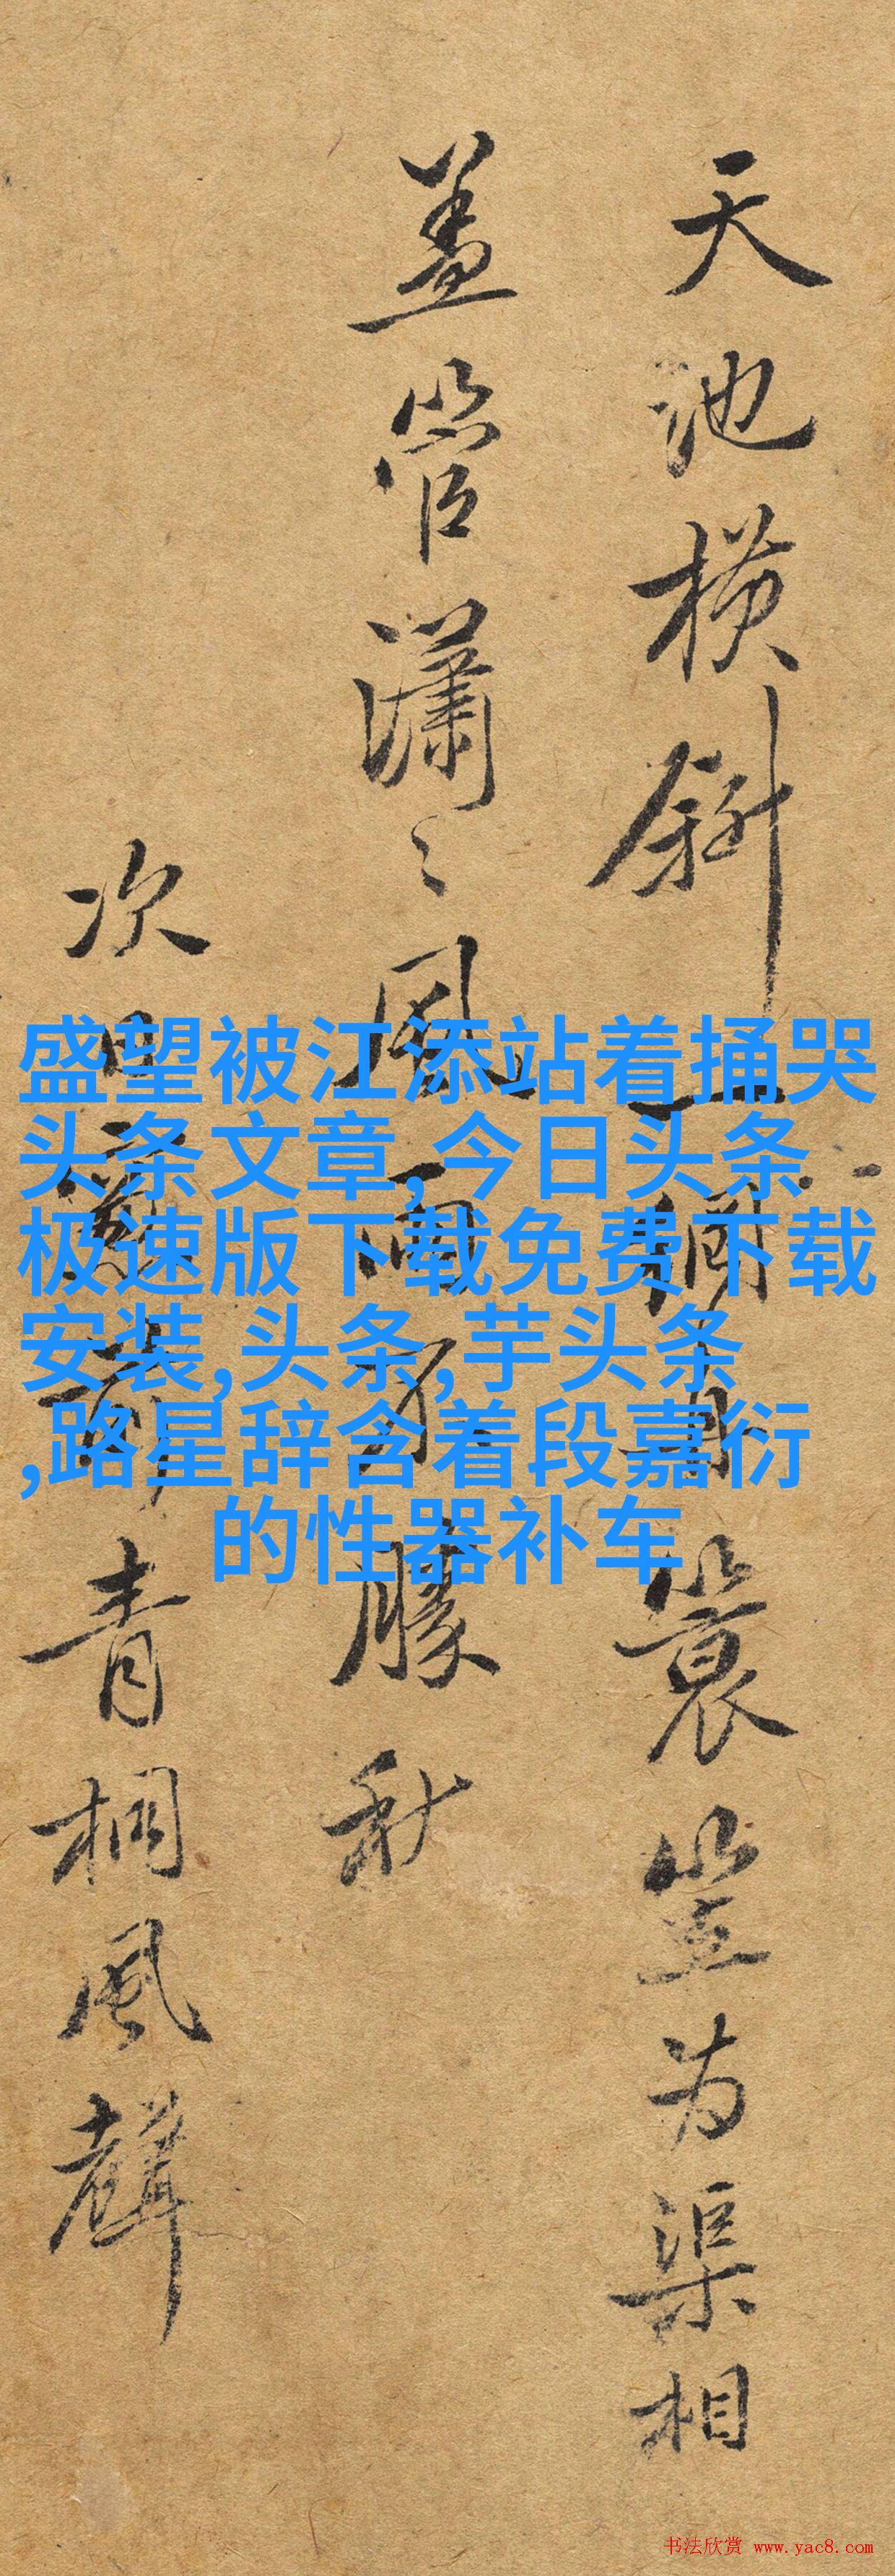 天池横斜一青蓑笠为渠相
盖管瀟〻風雨不勝秋
次日青桐風聲
盛望被江添站着捅哭
头条文章,今日头条
极速版下载免费下载
安装,头条,芋头条
,路星辞含着段嘉衍
的性器补车
书法欣赏 www.yac8.com